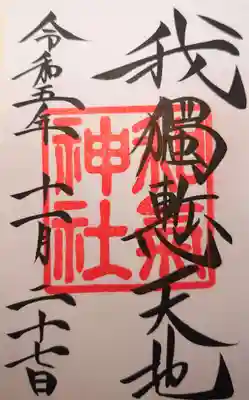 我獨慙天地
神社
令和五年十一月二十七日